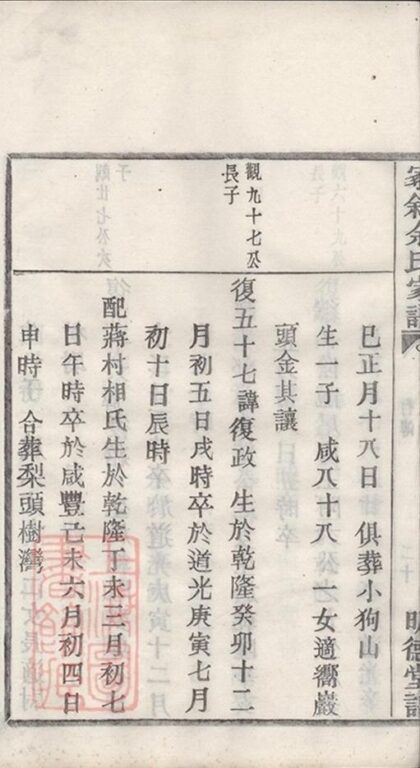 巳正月十八日 俱葬小狗山
生一子 咸八十八 一女適嚮巖
頭金其讓
觀九十七公
長子
復五十七諱復政 生於乾隆癸卯十二
月初五日戌時卒於道光庚寅七月
初十日辰時
配蔣村相氏生於乾隆丁未三月初七
日午時卒於咸豐己未六月初四日
申時 合葬梨頭樹灣